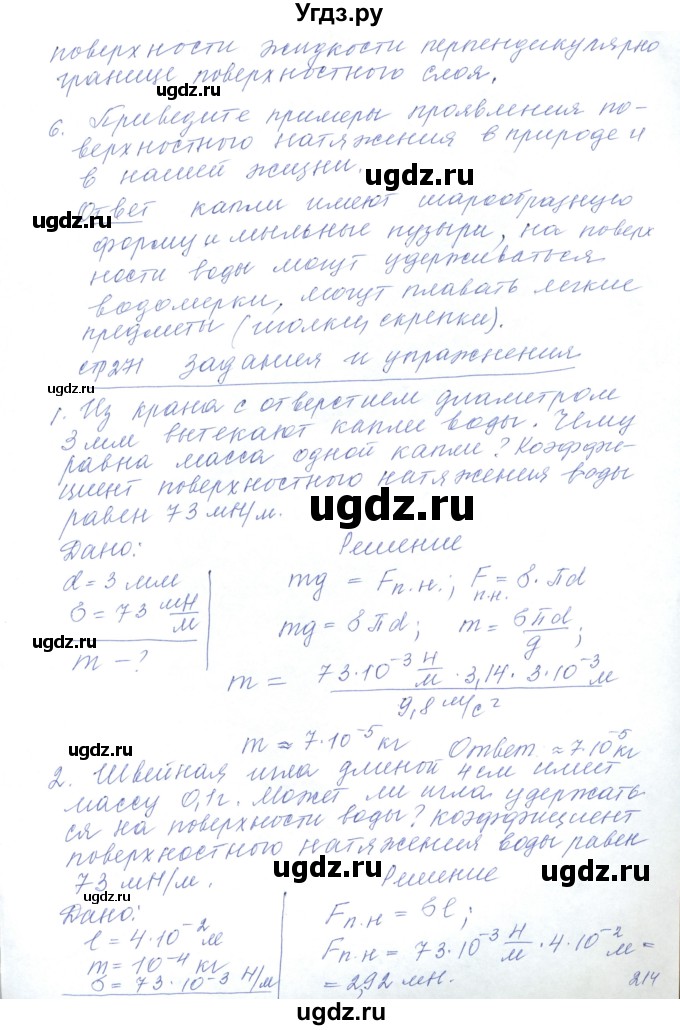 Угдз.ру
поверхности жидкости перпендикулярно
границе поверхностного слоя.
ugdz.ru
6. Приведите примеры проявления по-
верхностного натяжения в природе и
в нашей жизни.
ugdz.ru
ugdz.ru
Ответ капли имеют шарообразную
форму и мыльные пузыри, на поверх
ности воды могут удерживаться
водомерки, могут плавать легкие
предметы (иголки, скрепки).
стр271 Задания и упражнения
ugdz.ru
1. Из крана с отверстием диаметром
3 мм вытекают капли воды. Чему
равна масса одной капли? Коэффи-
циент поверхностного натяжения воды
равен 73 мН/м.
ugdz.ru
Дано: Решение
d = 3 мм mg = Fп.н.; Fп.н. = б · πd
б = 73 мН/м mg = б πd; m = бπd/g;
ugdz.ru
m - ?
m = 73·10⁻³ Н/м · 3,14 · 3·10⁻³ м / 9,8 м/с²
ugdz.ru
m ≈ 7·10⁻⁵ кг Ответ ≈ 7·10⁻⁵ кг
ugdz.ru
2. Швейная игла длиной 4 см имеет
массу 0,1г. Может ли игла удержать-
ся на поверхности воды? Коэффициент
поверхностного натяжения воды равен
73 мН/м. Решение
ugdz.ru
ugdz.ru
Дано: Fп.н = бl;
l = 4·10⁻² м Fп.н = 73·10⁻³ Н/м · 4·10⁻² м =
m = 10⁻⁴ кг = 2,92 мН.
б = 73·10⁻³ Н/м
ugdz.ru
214